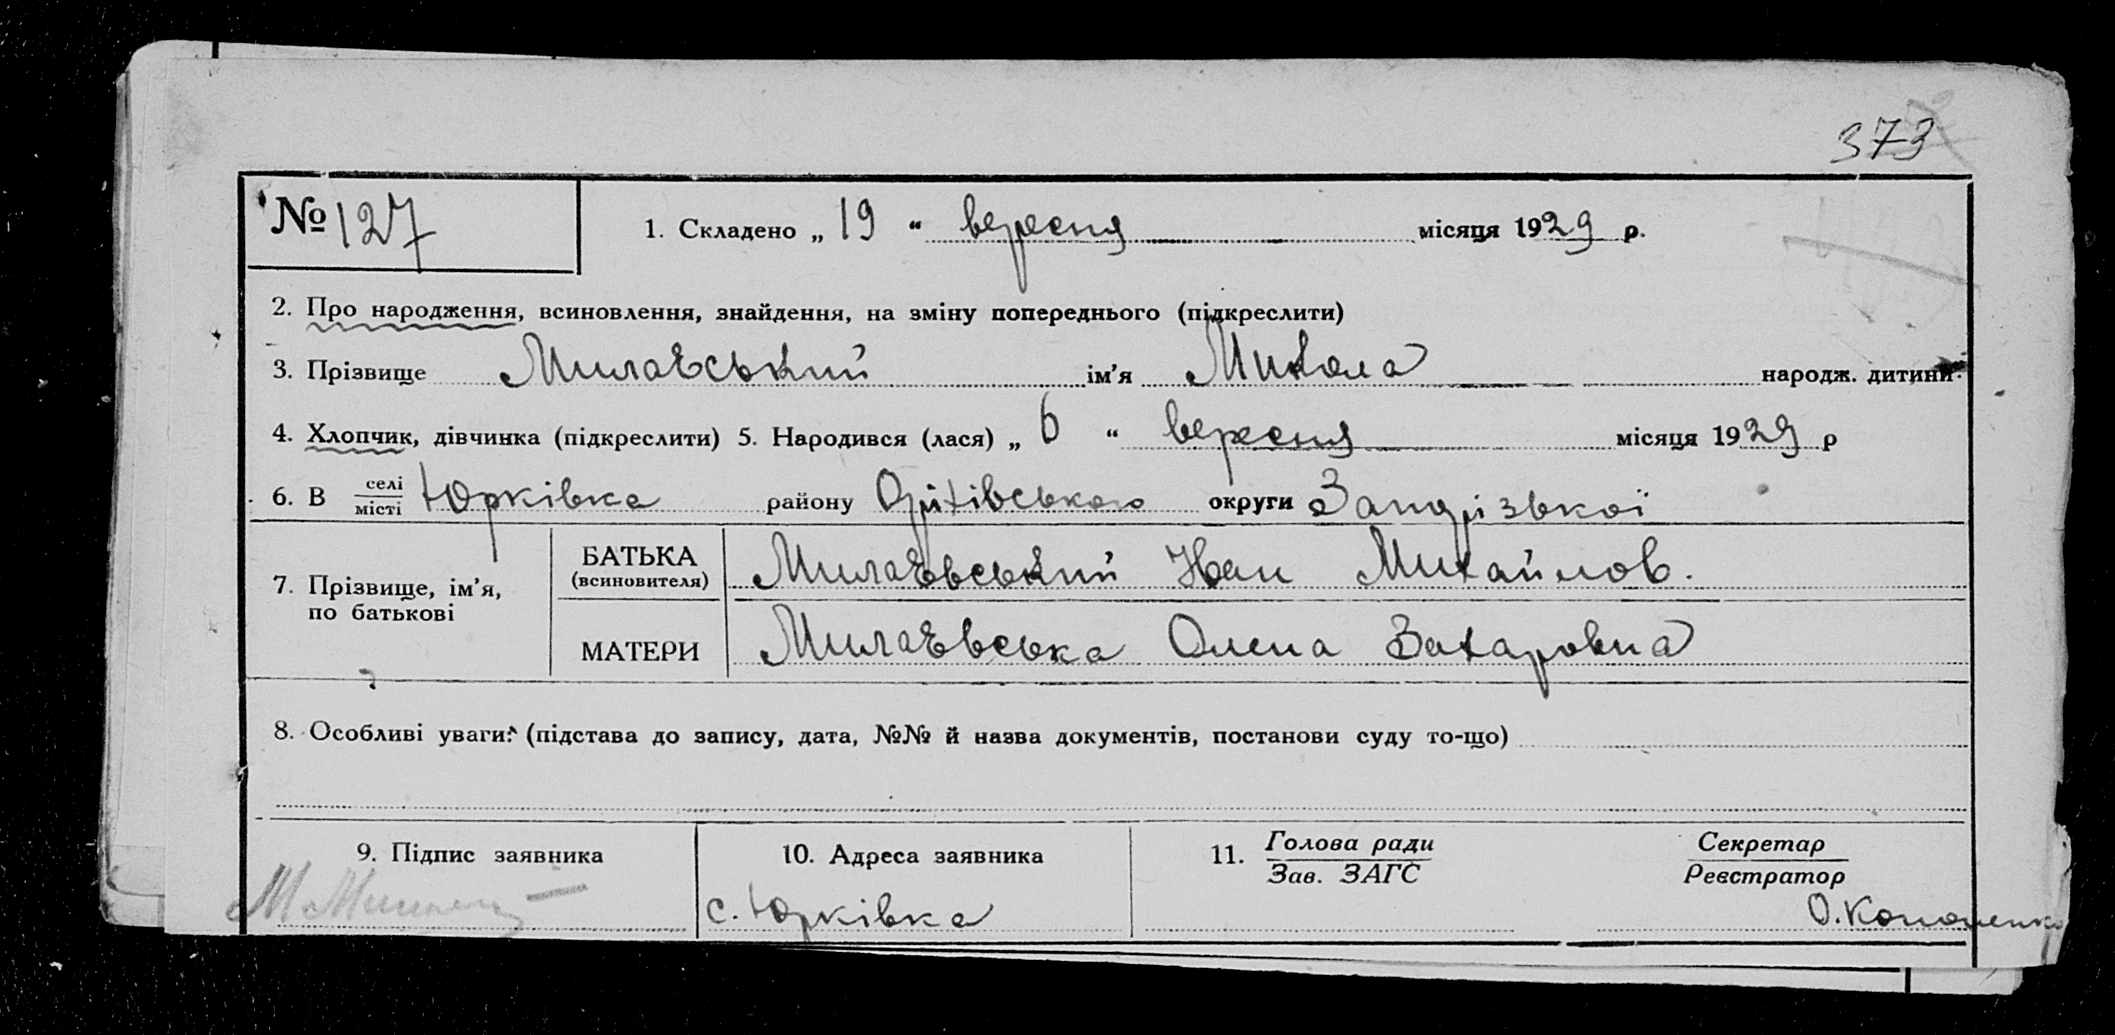 373
№ 127
1. Складено „ 19 “ вересня місяця 1929 р.
2. Про народження, всиновлення, знайдення, на зміну попереднього (підкреслити)
3. Прізвище Милаєвський ім’я Микола народж. дитини
4. Хлопчик, дівчинка (підкреслити) 5. Народився (лася) „ 6 “ вересня місяця 1929 р
6. В селі місті Юрківка району Оріхівського округи Запорізької
7. Прізвище, ім’я, по батькові
БАТЬКА (всиновителя) Милаєвський Иван Михайлов.
МАТЕРИ Милаєвська Олена Захаровна
8. Особливі уваги: (підстава до запису, дата, №№ й назва документів, постанови суду то-що)
9. Підпис заявника
10. Адреса заявника
с. Юрківка
11. Голова ради
Зав. ЗАГС
Секретар
Реєстратор
О. Кононенко